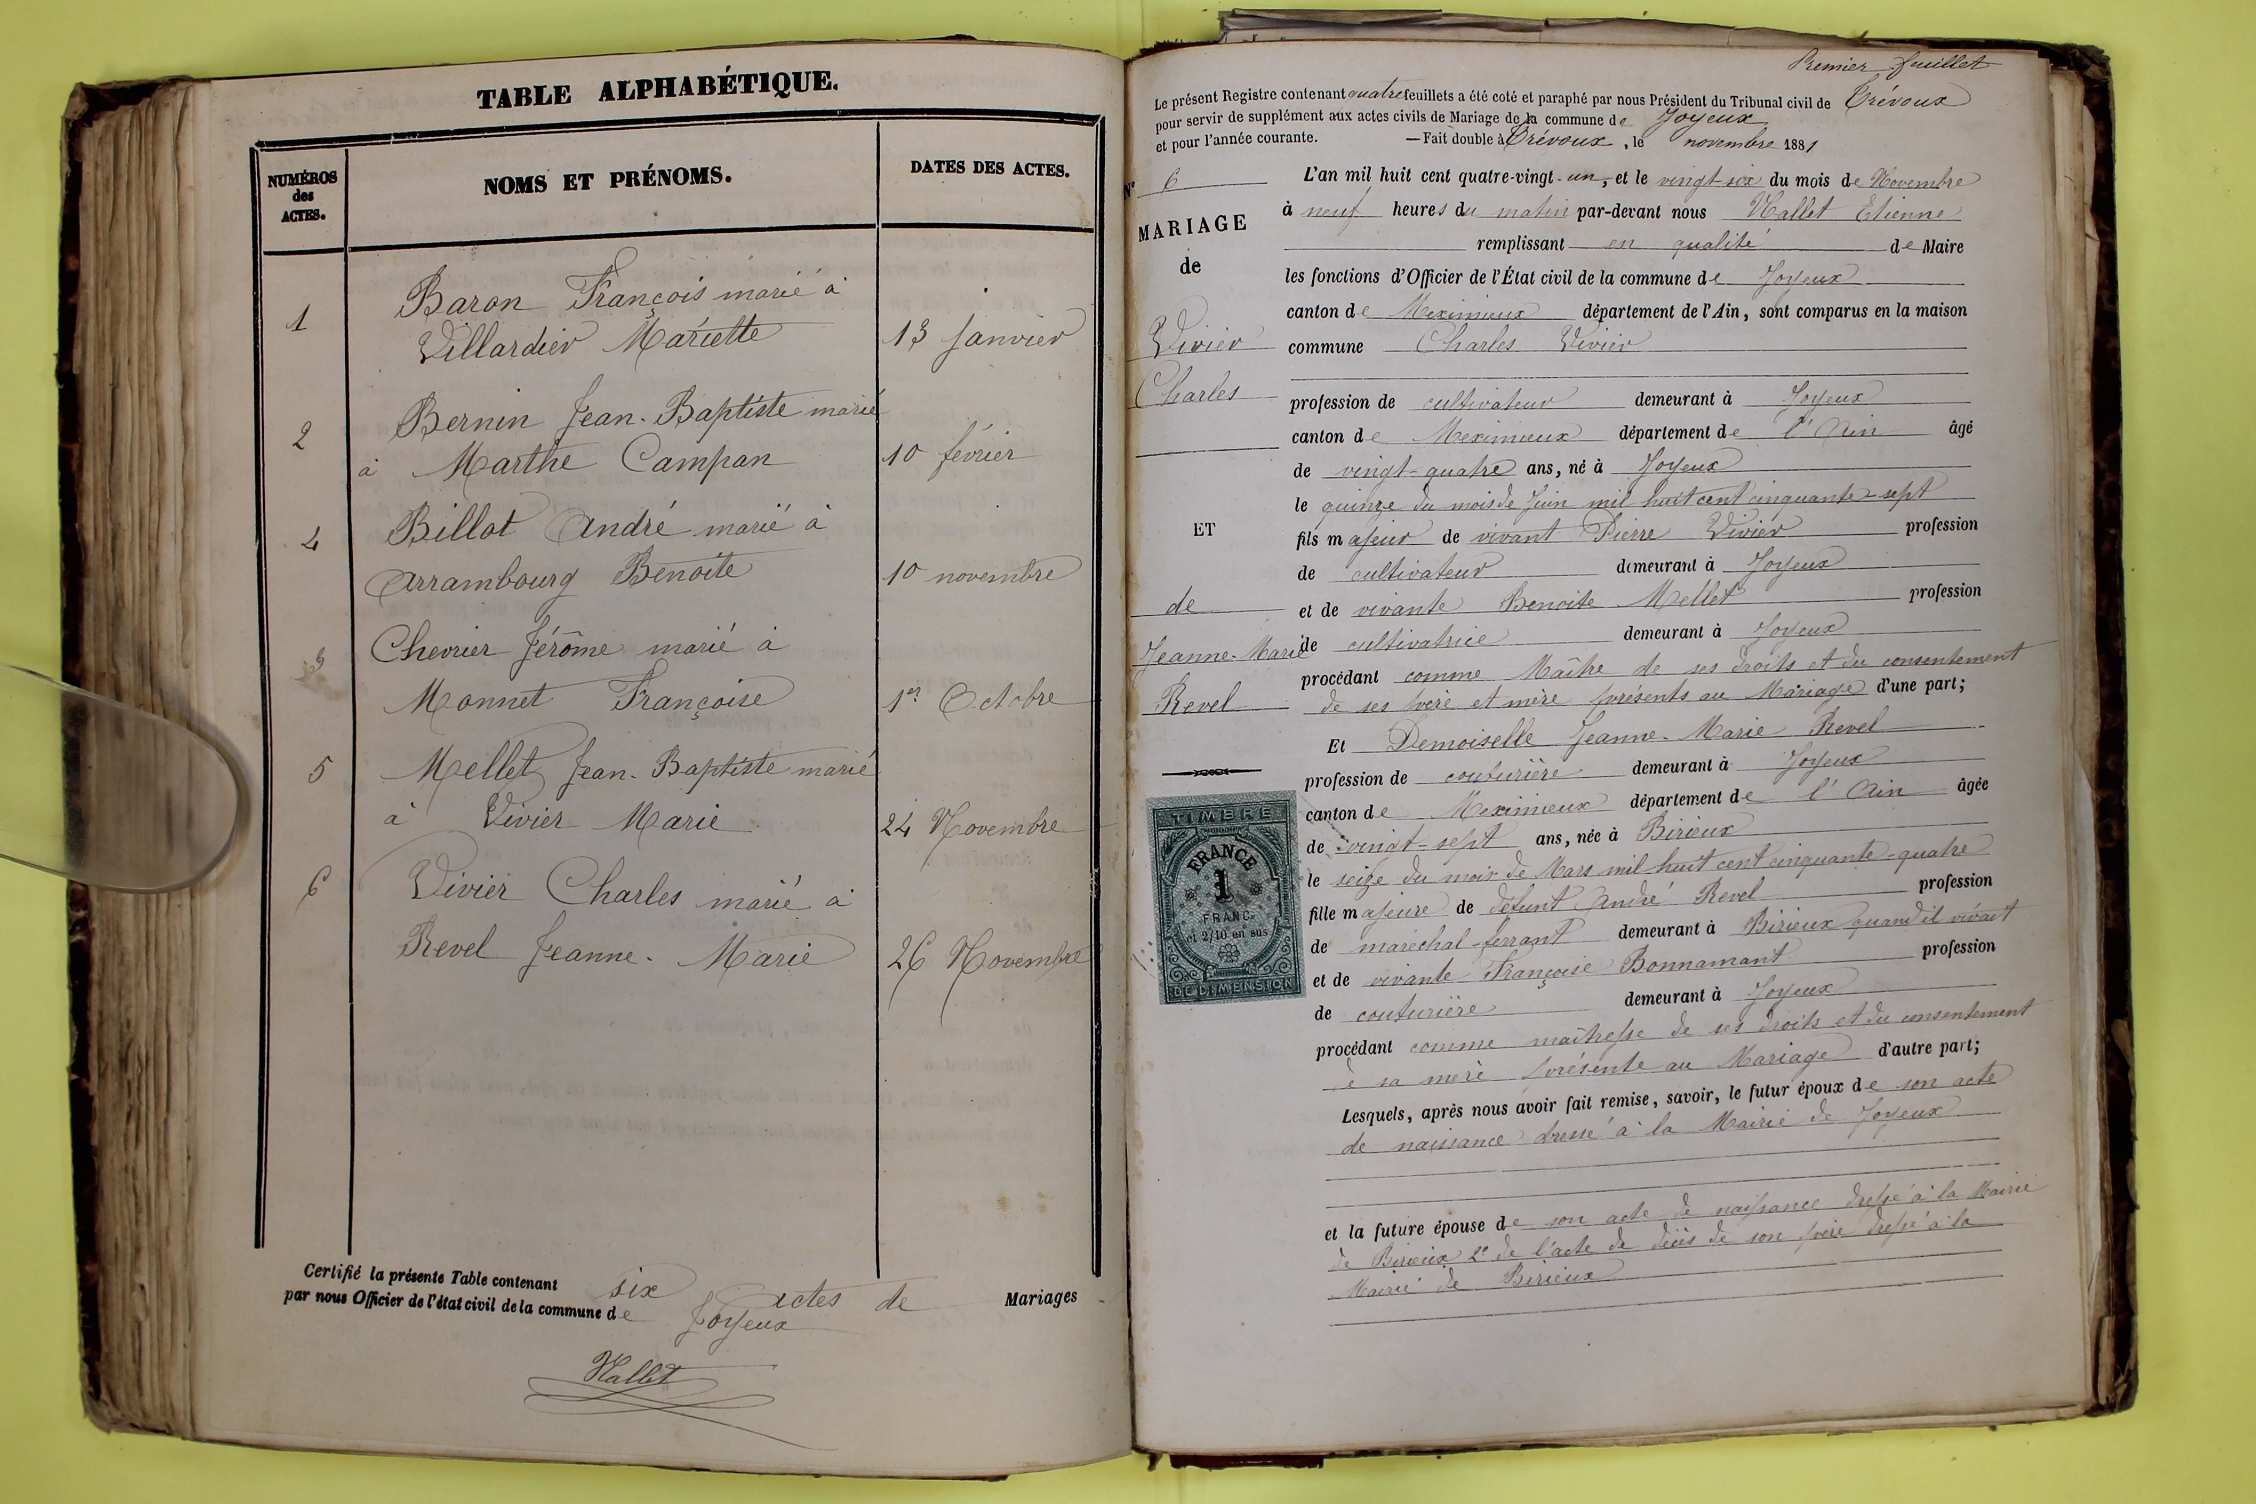 TABLE ALPHABÉTIQUE.
NUMÉROS des ACTES.
NOMS ET PRÉNOMS.
DATES DES ACTES.
1
Baron François marié à
Villardier Mariette
13 janvier
2
Bernin Jean-Baptiste marié
à Marthe Campan
10 février
4
Billot André marié à
Arrambourg Benoite
10 novembre
3
Chevrier Jérôme marié à
Monnet Françoise
1er Octobre
5
Mellet Jean-Baptiste marié
à Vivier Marie
24 Novembre
6
Vivier Charles marié à
Revel Jeanne-Marie
26 Novembre
Certifié la présente Table contenant six actes de Mariages
par nous Officier de l'état civil de la commune de Joyeux
Hallet
Premier feuillet
Le présent Registre contenant quatre feuillets a été coté et paraphé par nous Président du Tribunal civil de Trévoux
pour servir de supplément aux actes civils de Mariage de la commune de Joyeux
et pour l'année courante. — Fait double à Trévoux, le novembre 1881
N° 6
MARIAGE
de
Vivier
Charles
ET
de
Jeanne-Marie
Revel
L'an mil huit cent quatre-vingt-un, et le vingt-six du mois de Novembre
à neuf heures du matin par-devant nous Hallet Etienne
remplissant en qualité de Maire
les fonctions d'Officier de l'État civil de la commune de Joyeux
canton de Meximieux département de l'Ain, sont comparus en la maison
commune Charles Vivier
profession de cultivateur demeurant à Joyeux
canton de Meximieux département de l'Ain âgé
de vingt-quatre ans, né à Joyeux
le quinze du mois de Juin mil huit cent cinquante-sept
fils majeur de vivant Pierre Vivier profession
de cultivateur demeurant à Joyeux
et de vivante Benoite Mellet profession
de cultivatrice demeurant à Joyeux
procédant comme Maître de ses droits et du consentement
de ses père et mère présents au Mariage d'une part;
Et Demoiselle Jeanne-Marie Revel
profession de couturière demeurant à Joyeux
canton de Meximieux département de l'Ain âgée
de vingt-sept ans, née à Birieux
le seize du mois de Mars mil huit cent cinquante-quatre
fille majeure de défunt André Revel profession
de maréchal-ferrant demeurant à Birieux quand il vivait
et de vivante Françoise Bonnamant profession
de couturière demeurant à Joyeux
procédant comme maîtresse de ses droits et du consentement
de sa mère présente au Mariage d'autre part;
Lesquels, après nous avoir fait remise, savoir, le futur époux de son acte
de naissance dressé à la Mairie de Joyeux
et la future épouse de son acte de naissance dressé à la Mairie
de Birieux 2° de l'acte de décès de son père dressé à la
Mairie de Birieux
TIMBRE
FRANCE
1
FRANC
et 2/10 en sus
DE DIMENSION